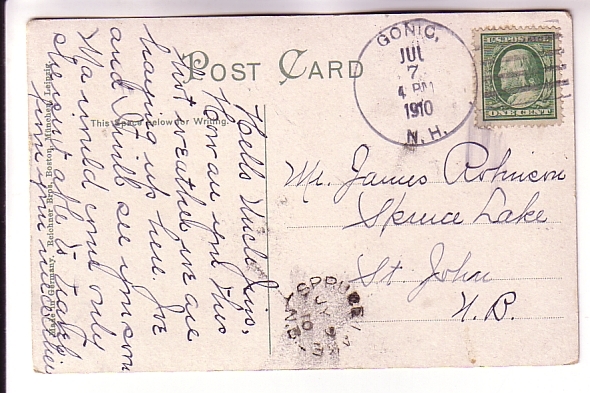 POST CARD
This Space Below for Writing.
Made in Germany. Reichner Bros. Boston, München, Leipzig
GONIC,
JUL
7
4 PM
1910
N. H.
U.S. POSTAGE
ONE CENT
Mr. James Robinson
Spruce Lake
St John
N. B.
SPRUCE
JY 9
10
N.B.
Hello Uncle Jim,
How are you this
hot weather we are
up here.
and will see you soon
Ma would come only
she isn't able to
from your niece